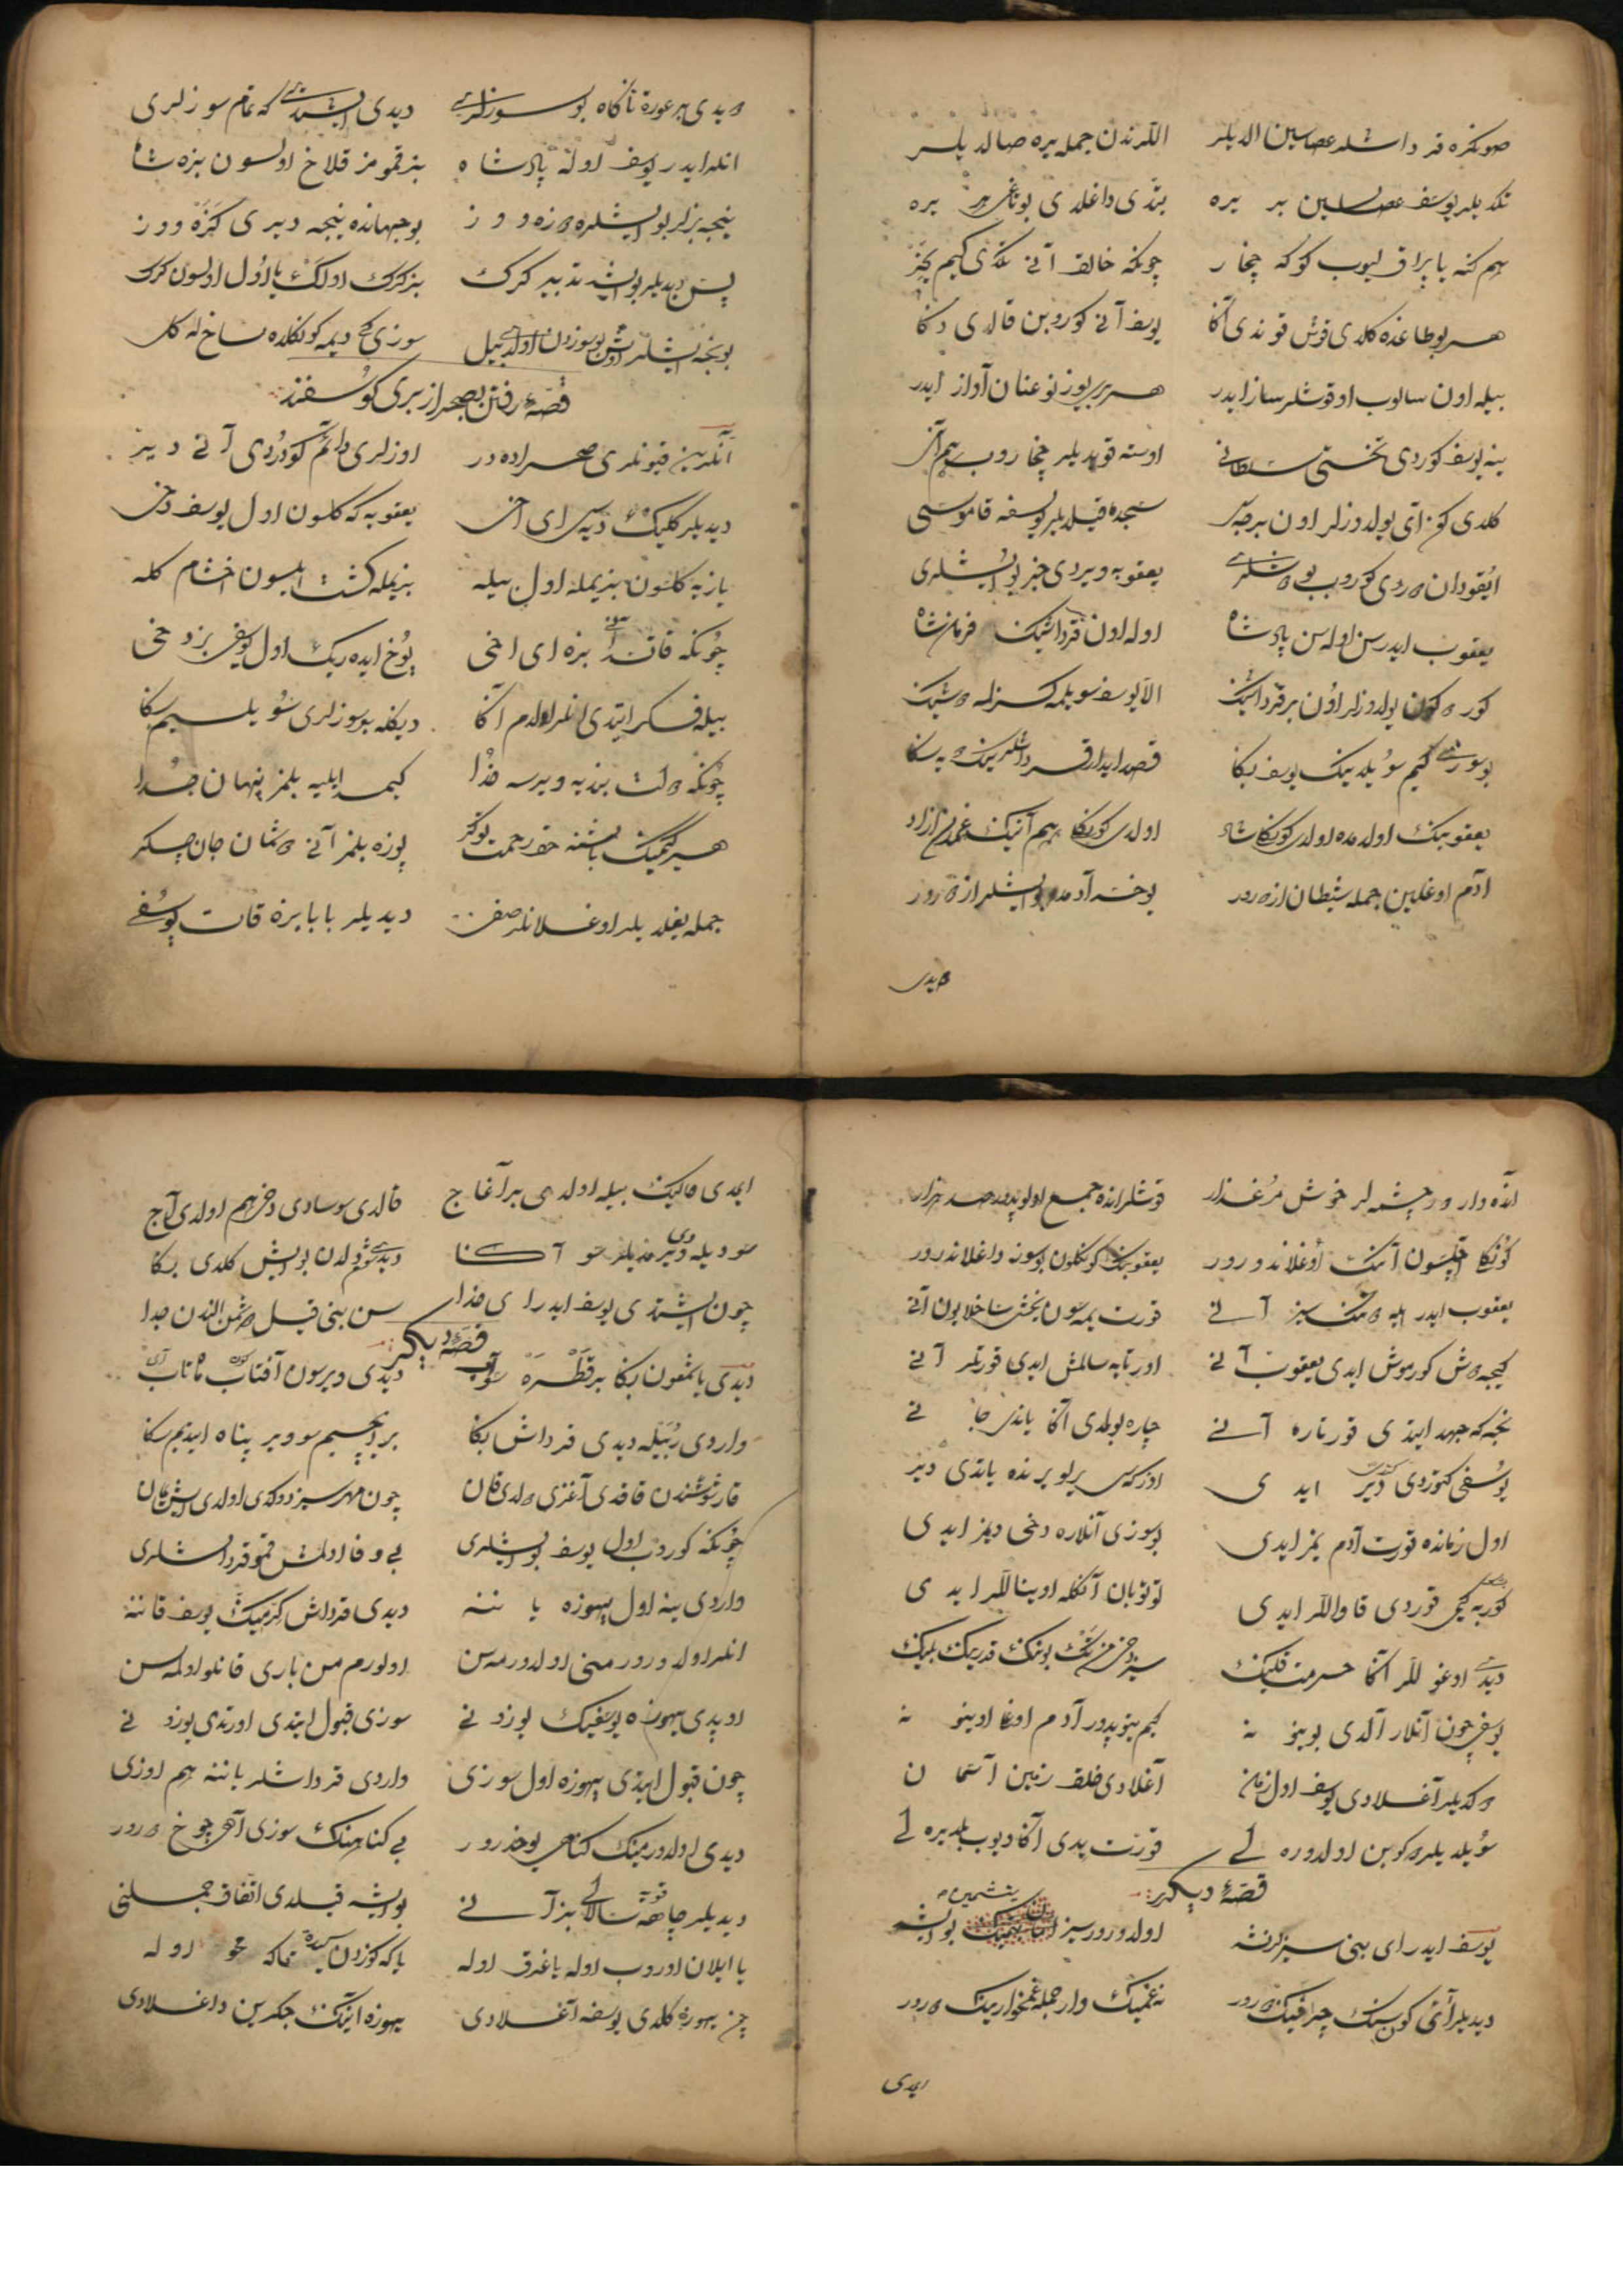 صوکره قرداشلر عصاسین الدیلر اللرندن جمله یره صالدیلر
تکدیلر یوسف عصاسین بر یره بتدی داغلدی بوتاغی هر یره
هم کنه یاپراق لیوب کوکه چخار چونکه خالق آنی تکدی کیم بچر
هر بوطاغنده کلدی قوش قوندی آکا یوسف آنی کوروبن قالدی دکا
بیله اون سالوب اوقوشلر ساز ایدر هر بری یوز نوع نان آواز ایدر
ینه یوسف کوردی تختی سلطانی اوسته قویدیلر چخاروب هم آنی
کلدی کون آی یولدوزلر اون بر سجده قیلدیلر یوسفه قاموسی
ایقودان دوردی کوروب بو دوشلری یعقوبه ویردی خبر بو ایشلری
یعقوب ایدر سن اوله سن پادشاه اوله اون قرداشیک فرمان شاه
کور کون یولدوزلر اون بر قرداشک الا یوسف سویلمه کسزله دوشک
بو سوزی کیم سویلدیک یوسف بکا قصد ایدر قرداشلریک دیه سکا
یعقوبیک اولدمده اولدی کونکلی شاد اولدی کونکلی هم آنیک غمدن ازاد
آدم اوغلین جمله شیطان ازدرور یوخسه آدمدن بو ایشلر ازدرور
دیدی
دیدی بر عورة ناکاه بو سوزلری دیدی ایشتدی که تمام سوزلری
انلر ایدر یوسف اوله پادشاه بز قمومز قلاخ اولسون بزه شاه
نیجه بزلر بو ایشلره دوزه وز بو جهانده نیجه دیری کزه ووز
پس دیدیلر بو ایشه تدبیر کرک بز کرک اولک یا اول اولسون کرک
بونجه ایشلر اوش بو سوزدن اولدی بیل سوزی کج دیمه کونکلده ساخله کل
قصهٔ رفتن بصحرا از بری کوسفند
آنلرین قیونلری صحراده در اوزلری دائم کودردی آنی دیر
دیدیلر کلیک دیه سی ای اخی یعقوبه که کلسون اول یوسف دخی
یازیه کلسون بزیمله اول بیله بزیمله کشت ایلسون اخشام کله
چونکه قاتدی آنی بزه ای اخی یوخ ایده ریک اول یوسفی بز دخی
بیله فکر ایتدی انلر اولدم آکا دیکله بو سوزلری سویلیم سکا
چونکه دولت بنده یه ویرسه خذا کیمسه ایلیه بلمز پنهان جدا
هر کیمیک باشنه حق رحمت توکر پوزه بلمز آنی دوشمان جان چکر
جمله یغلدیلر اوغلانلر صف دیدیلر بابا بزه قات یوسفی
انده وار ور چشمه لر خوش مرغذار قوشلر انده جمع اولوبدور صد هزار
کونکلی اچلسون آنک اوغلاندورور یعقوبنک کونکلون بو سوز داغلاندرور
یعقوب ایدر ایله دمک سیز آنی قورت یمه سون یخشی ساخلایون آنی
کیجه دوش کورموش ایدی یعقوب آنی اورتایه سالمش ایدی قورتلر آنی
نجه که جهد ایتدی قورتاره آنی چاره بولمدی آکا یاندی جانی
یوسفی کتوردی دیر ایدی اوزکه سی یرلو یرنده یاتدی دیر
اول زمانده قورت آدم یمز ایدی بو سوزی آنلاره دخی دیمز ایدی
کوربه کیمی قوردی قاوالر ایدی توتوبان آنکله اوینالر ایدی
دیدی اوغوللر آکا حرمت قلیک سیز دخی من تک بونک قدرنک بلیک
یوسفی چون آنلار آلدی بوینونه کیم ینوبدور آدم اوغلی اوینونه
دوکدیلر آغلادی یوسف اول زمان آغلادی خلق زمین آسمان
سویلدیلر کوبن اولدوره لی قورت یدی آکا دیوب بلدیره لی
قصهٔ دیکر
یوسف ایدر ای بنی سیز کرنه اولدورور سیز بو ایشه
دیدیلر آتی کوسنک چراغیک دورر نه غمیک وار جمله غمخواریک دورر
ایدی
ایدی مالیک بیله اولدی بر آغاج قالدی سوسادی دخی هم اولدی آج
سو دیله دی ویرمدیلر سو آکا دیدی شومدن بو ایش کلدی بکا
چون ایشتدی یوسف ایدر ای خذا سن بنی قیل دشمن الندن جدا
قصهٔ دیکر
دیدی یا شمعون بکا بر قطره سو آب دیدی ویرسون آفتاب ماه تاب
واردی ربیله دیدی قرداش بکا بر ایچیم سو ویر پناه ایتدیم سکا
قارنوشندن قافدی آغزی دولدی قان چون مهر سیز دوکدی اولدی ایش عیان
چونکه کوردی اول یوسف بو ایشلری بی وفا اولمش قمو قرداشلری
واردی ینه اول یهوزه یاننه دیدی قرداش کرمیک یوسف قاننه
انلر اولدورور منی اولدورمه سن اولورم من باری قانلو اولمه سن
اوپدی یهوزه یوسفیک یوزونی سوزی قبول ایتدی اورتدی یوزونی
چون قبول ایتدی یهوزه اول سوزی واردی قرداشلر یاننه هم اوزی
دیدی اولدورمنک کناهی یوخدرور بی کناهنک سوزی آهی چوخ دورور
دیدیلر چاهه سالالی بز آنی بو ایشه قیلدی اتفاق جملسی
یا ایلان اوروب اوله یا غرق اوله یا که کوزدن ناکه محو اوله
چن یهوزه کلدی یوسفه آغلادی یهوزه اینک جکرین داغلادی